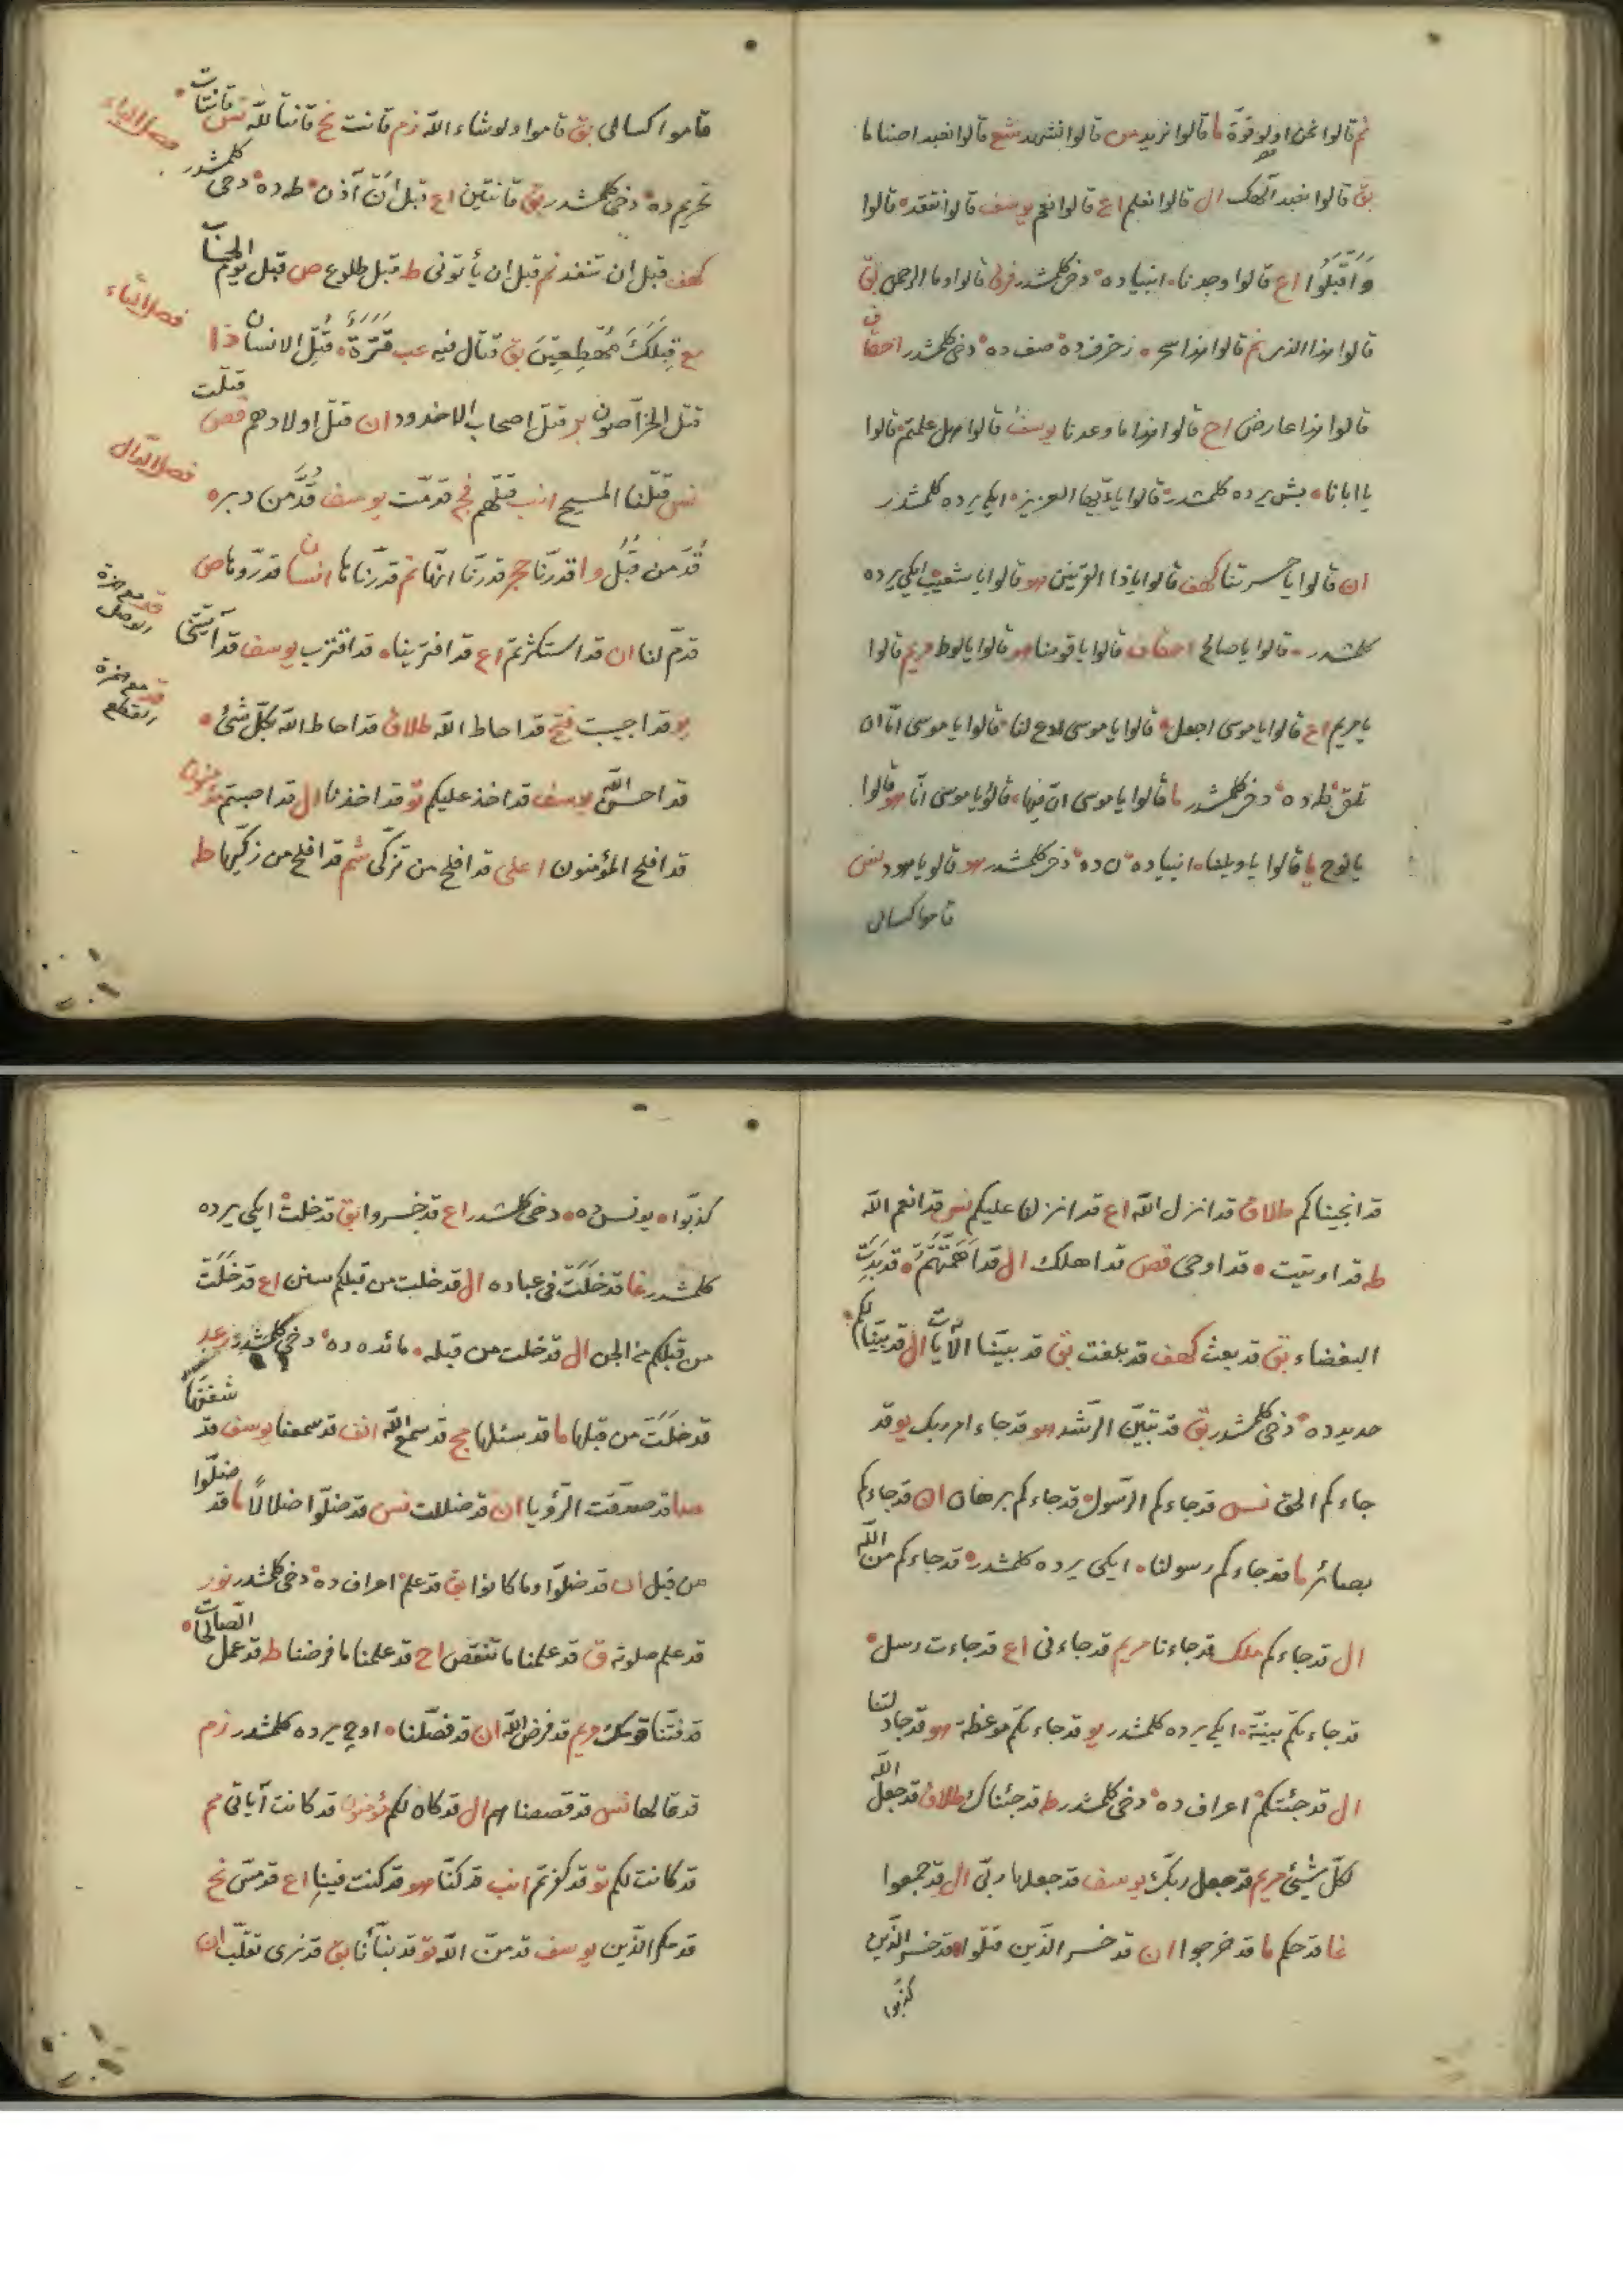 نم قالوا نحن اولو قوة ما قالوا نريد من قالوا نشهد شع قالوا نعبد اصناما
بق قالوا نعبد آلهك ال قالوا نعلم اع قالوا نعم يوسف قالوا نفقد قالوا
وَاَقْبَلُوا اع قالوا وجدنا انبياده دخى كلمشدر فرق قالوا وما الرحمن بق
قالوا هذا الذى نم قالوا هذا سحر زخرف ده صف ده دخى كلمشدر احقاف
قالوا هذا عارض اح قالوا هذا ما وعدنا يوسف قالوا هل علمتم قالوا
يا ابانا بش يرده كلمشدر قالوا يا ايها العزيز ايكى يرده كلمشدر
ان قالوا يا حسرتنا كهف قالوا ياذا القرنين هو قالوا يا شعيب ايكى يرده
كلمشدر قالوا يا صالح احقاف قالوا يا قومنا هو قالوا يا لوط مريم قالوا
يا مريم اع قالوا يا موسى اجعل قالوا يا موسى ادع لنا قالوا يا موسى اما ان
تلقى طه ده دخى كلمشدر ما قالوا يا موسى ان فيها قالوا يا موسى انا هو قالوا
يا نوح يا قالوا يا ويلنا انبياده ن ده دخى كلمشدر هو قالو يا هود نس
قاموا كسالى
قاموا كسالى بق قاموا ولو شاء الله زم قانت نح قانتا لله نس قانتات
فصل الباء
تحريم ده دخى كلمشدر بق قانتين اع قبل ان آذن طه ده دخى كلمشدر
كهف قبل ان تنفد نم قبل ان يأتونى ط قبل طلوع ص قبل يوم الحساب
فصل التاء
مع قِبَلَكَ مُهْطِعِينَ بق قتال فيه عب قَتَرَةٌ قُتِلَ الانسان ذا
قتل الخراصون بر قتل اصحاب الاخدود ان قتل اولادهم قص قتلت
فصل الدال
نس قتلنا المسيح انب قتلهم فج قدمت يوسف قُدَّ من دبر
قُدَّ من قُبُل وا قدرنا حجر قدرنا انها نم قدرناها انسان قدروها ص
قد مع همزة الوصل
قدم لنا ان قد استكثرتم اع قد افترينا قد اقترب يوسف قد آتيتنى
قد مع همزة القطع
يو قد اجيبت فتح قد احاط الله طلاق قد احاط الله بكل شئ
قد احسن الله يوسف قد اخذ عليكم تو قد اخذنا ال قد اصبتم مؤمنون
قد افلح المؤمنون اعلى قد افلح من تزكى شم قد افلح من زكيها ط
قد انجيناكم طلاق قد انزل الله اع قد انزلنا عليكم نس قد انعم الله
ط قد اوتيت قد اوحى قص قد اهلك ال قد اَهَمَّتْهُمْ قد بَدَتِ
البغضاء بق قد بعث كهف قد بلغت بق قد بينا الآيات ال قد بينا لكم
حديد ده دخى كلمشدر بق قد تبين الرشد هو قد جاء امر ربك يو قد
جاءكم الحق نس قد جاءكم الرسول قد جاءكم برهان ان قد جاءكم
بصائر ما قد جاءكم رسولنا ايكى يرده كلمشدر قد جاءكم من الله
ال قد جاءكم ملك قد جاءنا مريم قد جاءنى اع قد جاءت رسل
قد جاءتكم بينة ايكى يرده كلمشدر يو قد جاءتكم موعظة هو قد جادلتنا
ال قد جئتكم اعراف ده دخى كلمشدر ط قد جئناك طلاق قد جعل الله
لكل شيئ مريم قد جعل ربك يوسف قد جعلها ربى ال قد جمعوا
غا قد حكم ما قد خرجوا ان قد خسر الذين قتلوا قد خسر الذين
كذبوا
كذبوا يونس ده دخى كلمشدر اع قد خسروا بق قد خلت ايكى يرده
كلمشدر غا قد خَلَتْ فى عباده ال قد خلت من قبلكم سنن اع قد خَلَتْ
من قبلكم من الجن ال قد خلت من قبله مائده ده دخى كلمشدر رعد
قد خَلَتْ من قبلها ما قد سئلها مج قد سمع الله انف قد سمعنا يوسف قد شغفها
صا قد صدقت الرؤيا ان قد ضللت نس قد ضلوا ضلالاً ما قد ضلوا
من قبل ان قد ضلوا وما كانوا بق قد علم اعراف ده دخى كلمشدر نور
قد علم صلوته ق قد علمنا ما تنقص اح قد علمنا ما فرضنا ط قد عمل الصالحات
قد فتنا قومك مريم قد فرض الله ان قد فصلنا اوچ يرده كلمشدر زم
قد قالها نس قد قصصناهم ال قد كان لكم مؤمنون قد كانت آياتى مم
قد كانت لكم تو قد كفرتم انب قد كنا هو قد كنت فينا اع قد مس نح
قد مكر الذين يوسف قد من الله تو قد نبأنا بق قد نرى تقلب ان